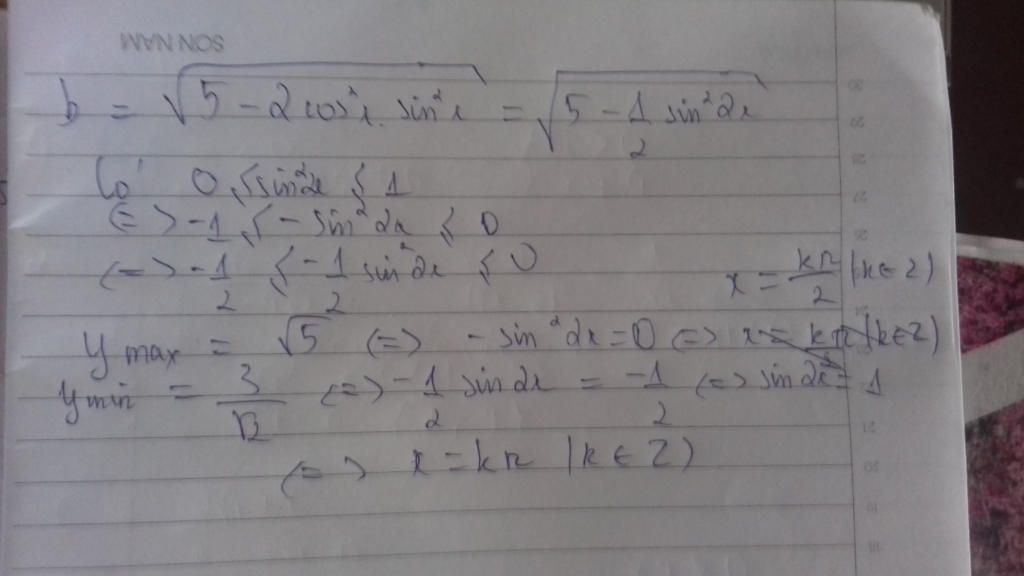 SON NAM
b = √(5 - 2cos²x. sin²x) = √(5 - 1/2 sin²2x)
Có 0 ≤ sin²2x ≤ 1
<=> -1 ≤ - sin²2x ≤ 0
<=> -1/2 ≤ -1/2 sin²2x ≤ 0
x = kπ/2 (k ∈ Z)
y max = √5 <=> - sin²2x = 0 <=> x = kπ (k ∈ Z)
y min = 3/√2 <=> -1/2 sin2x = -1/2 <=> sin2x = 1
<=> x = kπ (k ∈ Z)
30
29
28
27
26
25
24
21
20
19
18